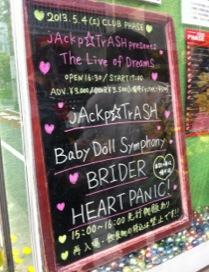 2013.5.4(土) CLUB PHASE
jAckp☆TrASH presents
The Live of DreamS
OPEN 16:30 / START 17:00
ADV. ¥3,000
jAckp☆TrASH
Baby Doll Symphony
BRIDER
HEART PANIC!
15:00~16:00 先行物販あり
再入場・飲食物の持込は禁止です!!
PHASE